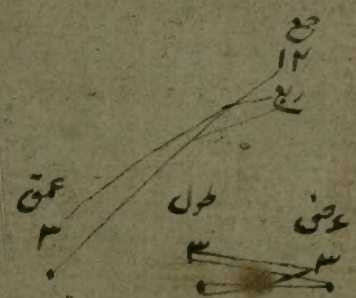 جمع
١٢
ربع
عمق
٣
طول
٣
عرض
٣